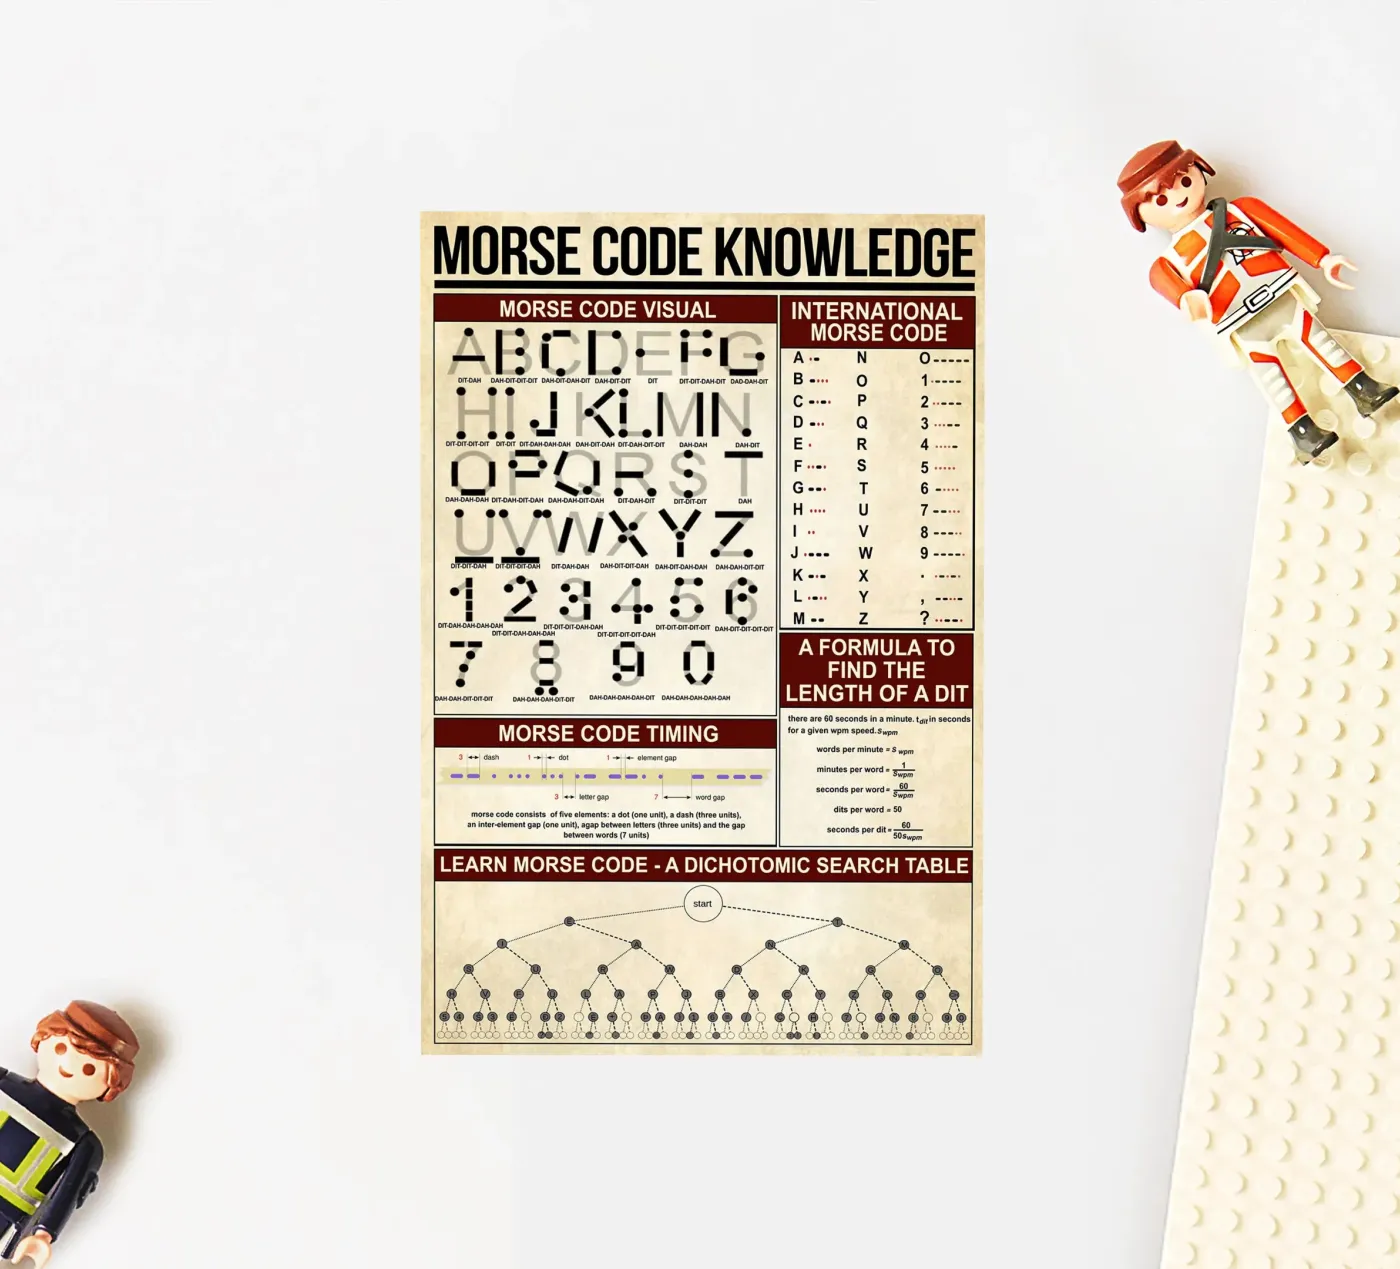 MORSE CODE KNOWLEDGE
MORSE CODE VISUAL
ABCDEFG
DIT-DAH DAH-DIT-DIT-DIT DAH-DIT-DAH-DIT DAH-DIT-DIT DIT DIT-DIT-DAH-DIT DAD-DAH-DIT
HIJKLMN
DIT-DIT-DIT-DIT DIT-DIT DIT-DAH-DAH-DAH DAH-DIT-DAH DIT-DAH-DIT-DIT DAH-DAH DAH-DIT
OPQRST
DAH-DAH-DAH DIT-DAH-DAH-DIT DAH-DAH-DIT-DAH DIT-DAH-DIT DIT-DIT-DIT DAH
UVWXYZ
DIT-DIT-DAH DIT-DIT-DIT-DAH DIT-DAH-DAH DAH-DIT-DIT-DAH DAH-DIT-DAH-DAH DAH-DAH-DIT-DIT
1 2 3 4 5 6
DIT-DAH-DAH-DAH-DAH DIT-DIT-DAH-DAH-DAH DIT-DIT-DIT-DAH-DAH DIT-DIT-DIT-DIT-DAH DIT-DIT-DIT-DIT-DIT DAH-DIT-DIT-DIT-DIT
7 8 9 0
DAH-DAH-DIT-DIT-DIT DAH-DAH-DAH-DIT-DIT DAH-DAH-DAH-DAH-DIT DAH-DAH-DAH-DAH-DAH
INTERNATIONAL
MORSE CODE
A N O
B O 1
C P 2
D Q 3
E R 4
F S 5
G T 6
H U 7
I V 8
J W 9
K X .
L Y ,
M Z ?
A FORMULA TO
FIND THE
LENGTH OF A DIT
there are 60 seconds in a minute. tdit in seconds
for a given wpm speed. swpm
words per minute = s wpm
minutes per word = 1/swpm
seconds per word = 60/swpm
dits per word = 50
seconds per dit = 60/50swpm
MORSE CODE TIMING
3 dash 1 dot 1 element gap
3 letter gap 7 word gap
morse code consists of five elements: a dot (one unit), a dash (three units),
an inter-element gap (one unit), agap between letters (three units) and the gap
between words (7 units)
LEARN MORSE CODE - A DICHOTOMIC SEARCH TABLE
start
E T
I A N M
S U R W D K G O